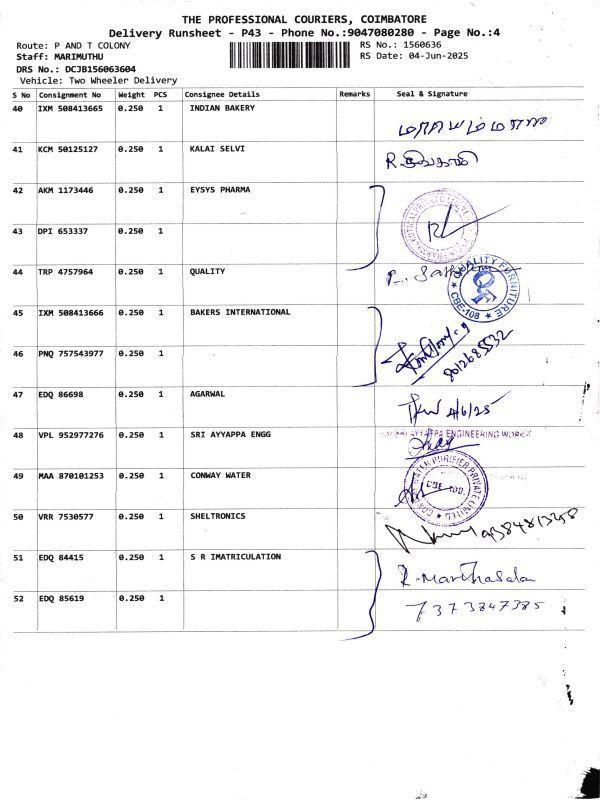 THE PROFESSIONAL COURIERS, COIMBATORE
Delivery Runsheet - P43 - Phone No.:9047080280 - Page No.:4
Route: P AND T COLONY
RS No.: 1560636
Staff: MARIMUTHU
RS Date: 04-Jun-2025
DRS No.: DCJB156063604
Vehicle: Two Wheeler Delivery
S No Consignment No Weight PCS Consignee Details Remarks Seal & Signature
40 IXM 508413665 0.250 1 INDIAN BAKERY
41 KCM 50125127 0.250 1 KALAI SELVI
42 AKM 1173446 0.250 1 EYSYS PHARMA
43 DPI 653337 0.250 1
44 TRP 4757964 0.250 1 QUALITY
QUALITY FURNITURE
QF
CBE-108
45 IXM 508413666 0.250 1 BAKERS INTERNATIONAL
46 PNQ 757543977 0.250 1
8012685532
47 EDQ 86698 0.250 1 AGARWAL
4/6/25
48 VPL 952977276 0.250 1 SRI AYYAPPA ENGG
ENGINEERING WORKS
49 MAA 870101253 0.250 1 CONWAY WATER
WATER PURIFIER PRIVATE LIMITED
50 VRR 7530577 0.250 1 SHELTRONICS
51 EDQ 84415 0.250 1 S R IMATRICULATION
52 EDQ 85619 0.250 1
7373847385